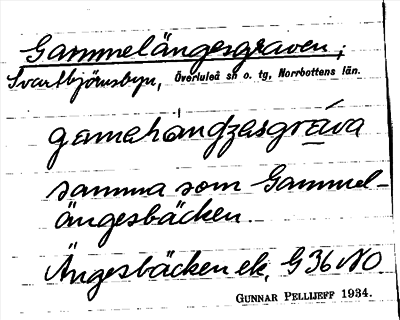 Gammelängesgraven;
Svartbjörnsbyn, Överluleå sn o. tg, Norrbottens län.
samma som Gammel-
ängesbäcken.
Ängesbäcken ek. G36 NO
GUNNAR PELLIJEFF 1934.